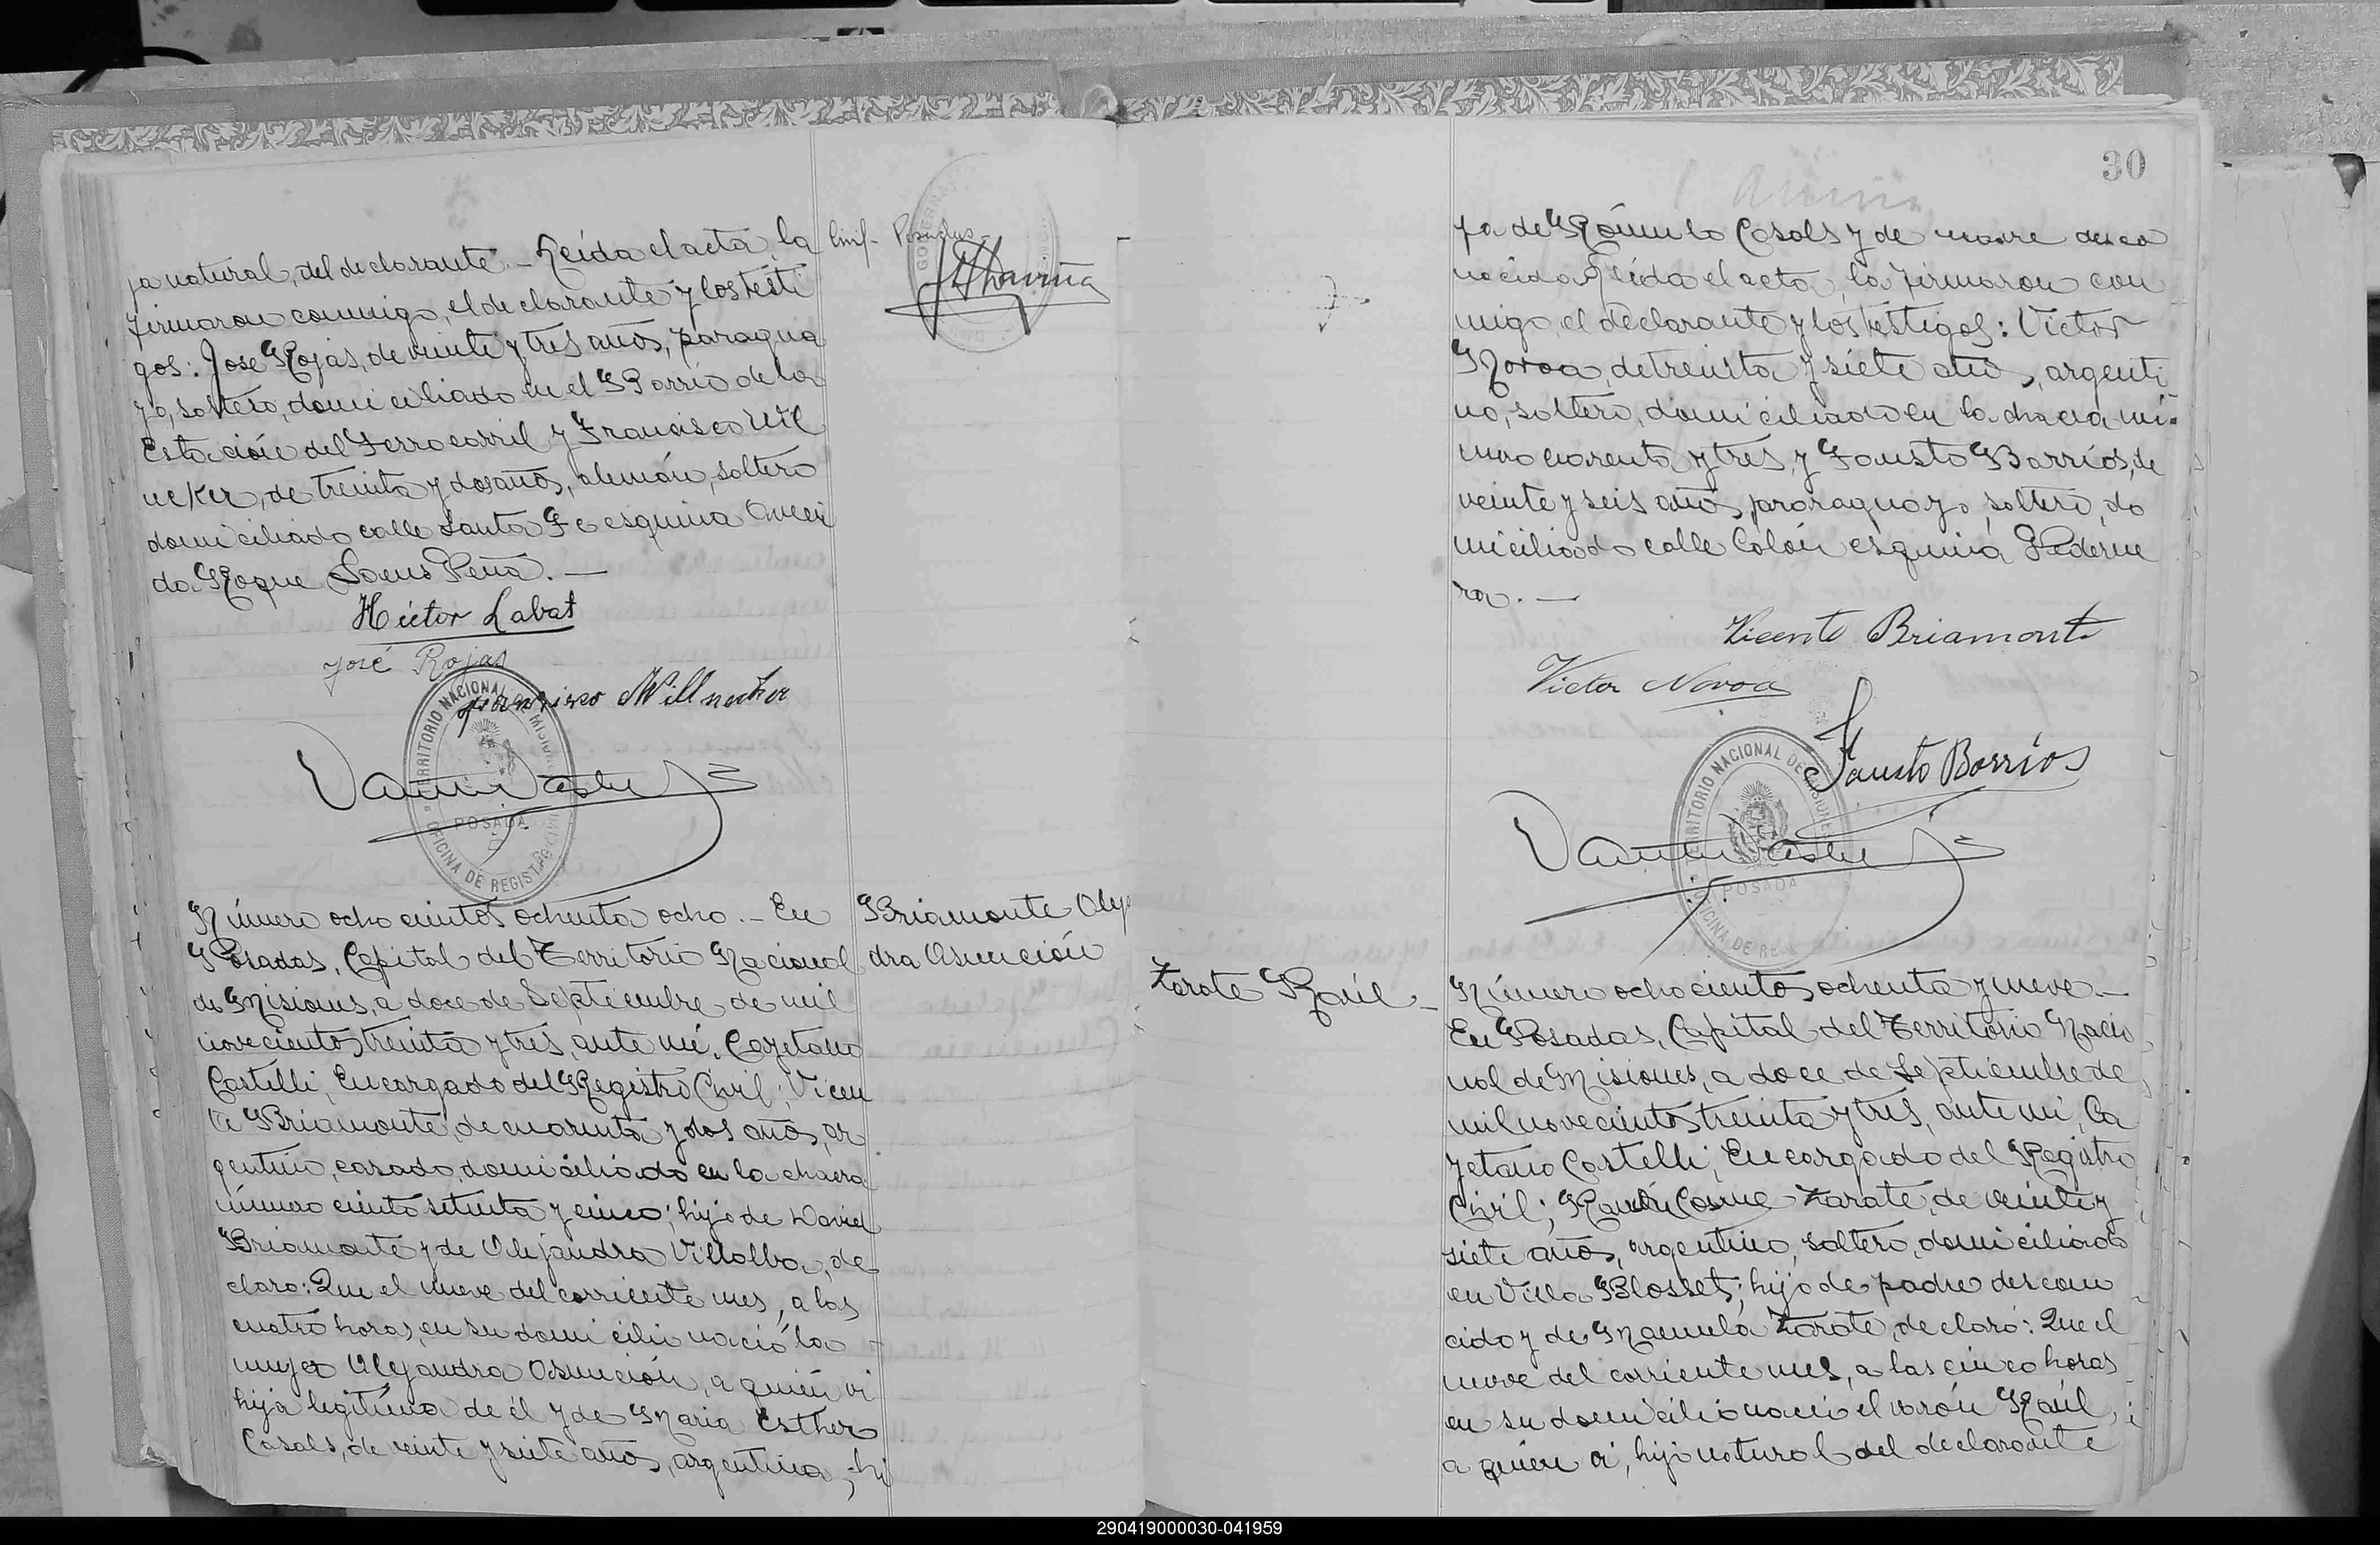 ja natural, del declarante.- Leida el acta, la
firmaron conmigo, el declarante y los testi
gos: José Rojas, de veinte y tres años, paragua
yo, soltero, domiciliado en el Barrio de la
Estación del Ferrocarril y Francisco Wil
neker, de treinta y dos años, alemán, soltero
domiciliado calle Santa Fe esquina Aveni
da Roque Saens Peña.-
Héctor Labat
José Rojas
Francisco Willneker
TERRITORIO NACIONAL DE MISIONES
POSADAS
OFICINA DE REGISTRO CIVIL
Número ocho cientos ochenta ocho.- En
Posadas, Capital del Territorio Nacional
de Misiones, a doce de Septiembre de mil
novecientos treinta y tres, ante mí, Cayetano
Castelli, Encargado del Registro Civil; Vicen
te Briamonte, de cuarenta y dos años, ar
gentino, casado, domiciliado en la chacra
número ciento setenta y cinco; hijo de David
Briamonte y de Alejandra Villalba, de
claro: Que el nueve del corriente mes, a las
cuatro horas, en su domicilio nació la
mujer Alejandra Asunción, a quién vi
hija legítima de él y de Maria Esther
Casals, de veinte y siete años, argentina, hi
Briamonte Alej
dra Asunción
30
ja de Rómulo Casals y de madre desco
nocida. Leida el acta, la firmaron con
migo, el declarante y los testigos: Victor
Novoa, de treinta y siete años, argenti
no, soltero, domiciliado en la chacra nú
mero cuarenta y tres, y Fausto Barrios, de
veinte y seis años, paraguayo, soltero, do
miciliado calle Colón esquina Federne
ra.-
Vicente Briamonte
Victor Novoa
Fausto Barrios
TERRITORIO NACIONAL DE MISIONES
POSADAS
OFICINA DE REG
Zarate Raúl.-
Número ochocientos ochenta y nueve.-
En Posadas, Capital del Territorio Nacio
nal de Misiones, a doce de Septiembre de
mil novecientos treinta y tres, ante mí, Ca
yetano Castelli, Encargado del Registro
Civil; Ramón Cosme Zarate, de veinte y
siete años, argentino, soltero, domiciliado
en Villa Blosset; hijo de padre descono
cido y de Manuela Zarate, declaró: Que el
nueve del corriente mes, a las cinco horas
en su domicilio nació el varón Raúl,
a quién vi, hijo natural del declarante
290419000030-041959